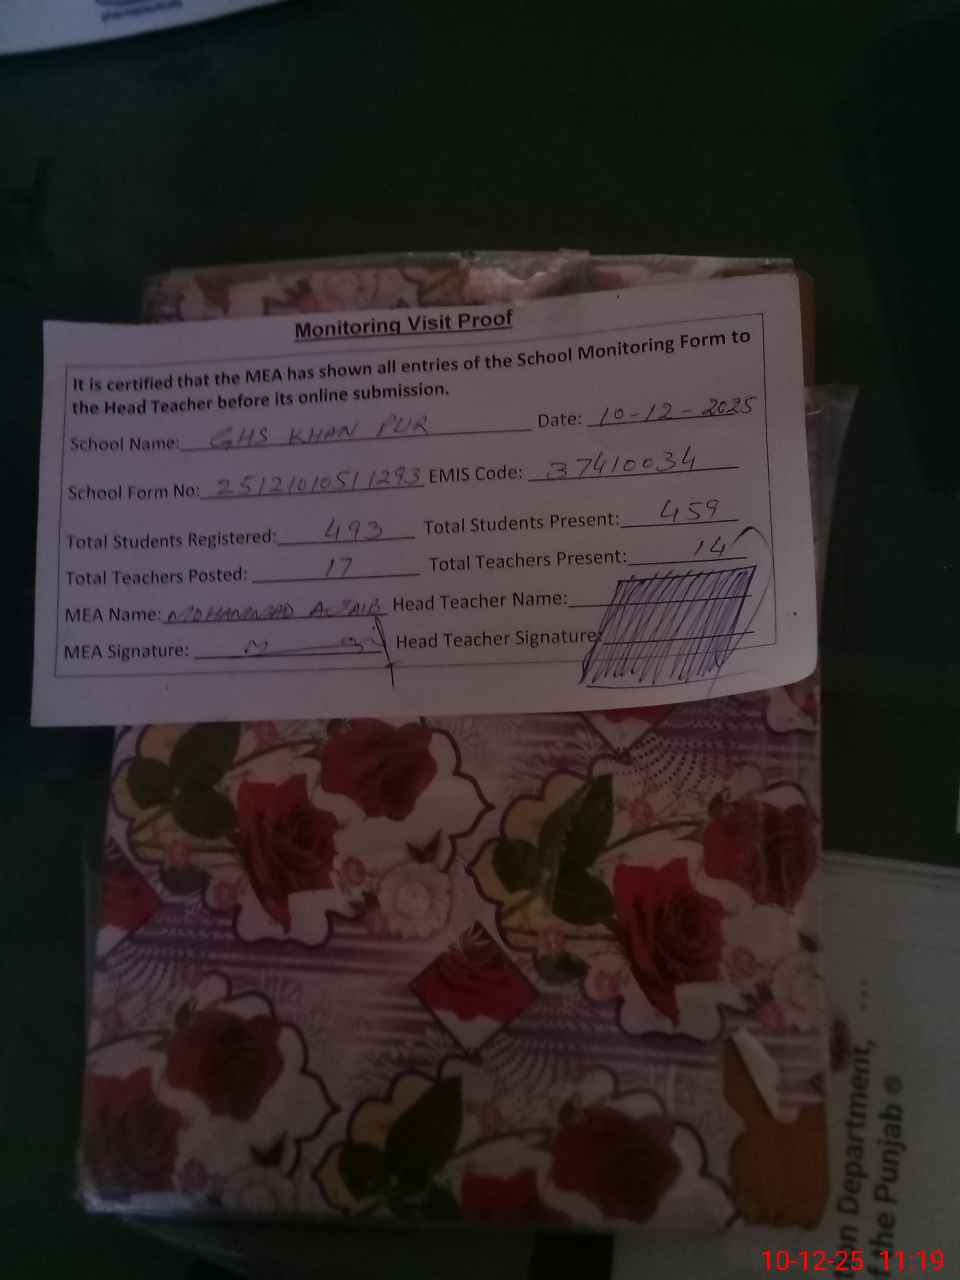 Monitoring Visit Proof
It is certified that the MEA has shown all entries of the School Monitoring Form to
the Head Teacher before its online submission.
School Name: GHS KHAN PUR Date: 10-12-2025
School Form No: 25121010511293 EMIS Code: 37410034
Total Students Registered: 493 Total Students Present: 459
Total Teachers Posted: 17 Total Teachers Present: 14
MEA Name: MOHAMMAD Head Teacher Name:
MEA Signature: Head Teacher Signature:
on Department,
f the Punjab
10-12-25 11:19